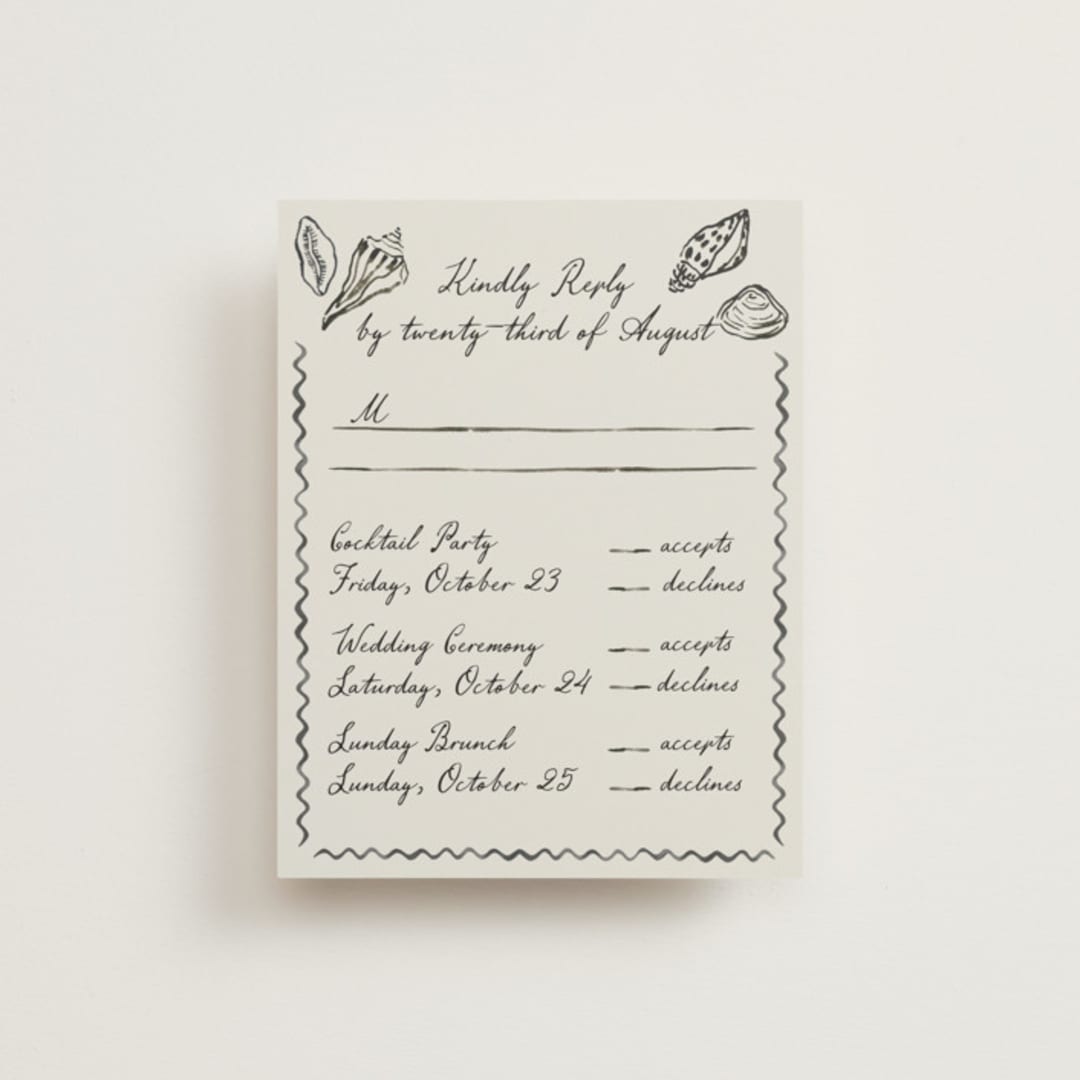 Kindly Reply
by twenty-third of August
M
Cocktail Party ___ accepts
Friday, October 23 ___ declines
Wedding Ceremony ___ accepts
Saturday, October 24 ___ declines
Sunday Brunch ___ accepts
Sunday, October 25 ___ declines